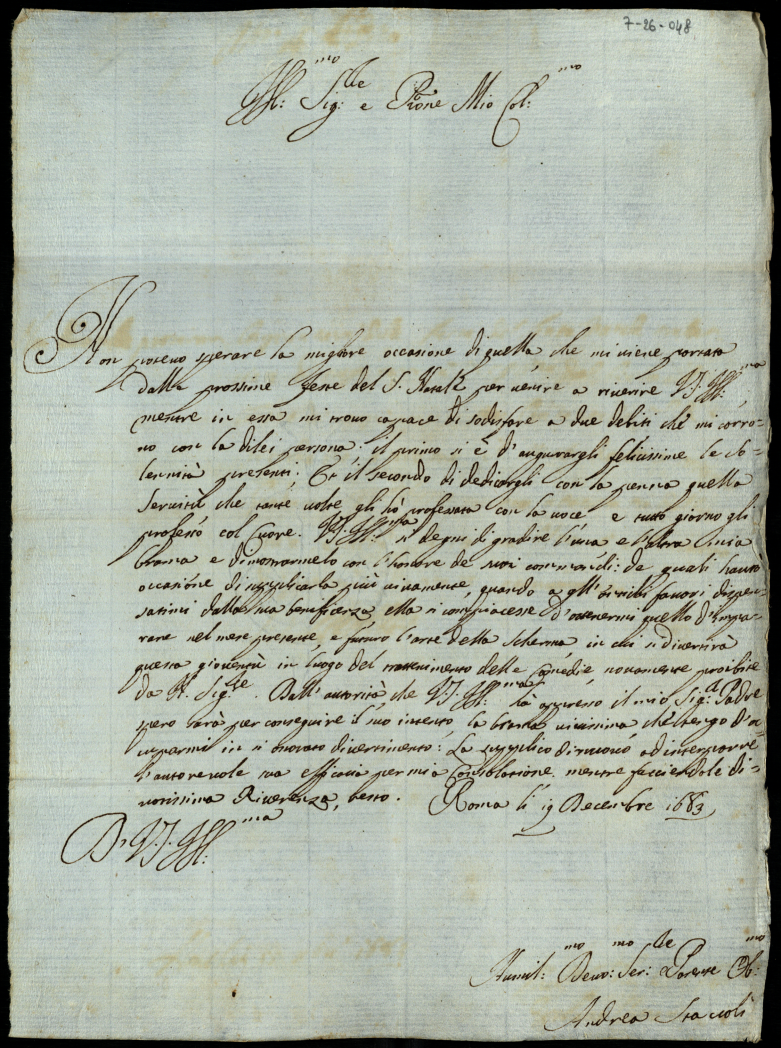 7-26-048
Ill:mo Sig:re e Prone Mio Col:mo
Non potevo sperare la migliore occasione di quella, che mi viene portata
dalla prossime feste del S. Natale per venire a riverire V.S. Ill:ma
mentre in essa mi trovo capace di sodisfare a due debiti che mi corro=
no con la di lei persona: il primo si è d'augurargli felicissime le So=
lennità presenti; Et il secondo di dedicargli con la penna quella
Servitù che tante volte gli hò professata con la voce e tutto giorno gli
professo col Cuore. V.S. Ill:ma si degni di gradire l'una e l'altra mia
brama e dimostrarmelo con l'honore de suoi commandi: de quali haurò
occasione di supplicarla più vivamente, quando a gl'altri favori dispen=
satimi dalla sua beneficenza, ella si compiacesse d'ottenermi quello d'impa=
rare nel mese presente, e futuro l'arte della scherma in cui si divertirà
questa gioventù in luogo del trattenimento delle Comedie, novamente proibite
da N. Sig:re. Dall'autorità, che V.S. Ill:ma hà appresso il mio Sig:r Padre
spero sarà per conseguire il suo intento, la brama vivissima che tengo d'oc=
cuparmi in si onorato divertimento: La supplico di nuovo ad interporre
l'autorevole sua efficacia per mia Consolatione mentre facciendole di=
votissima Riverenza, resto. Roma li 19 Decembre 1683
Di V.S. Ill:ma
Humil:mo Devo:mo Ser:re Parente Ob:mo
Andrea Staccoli